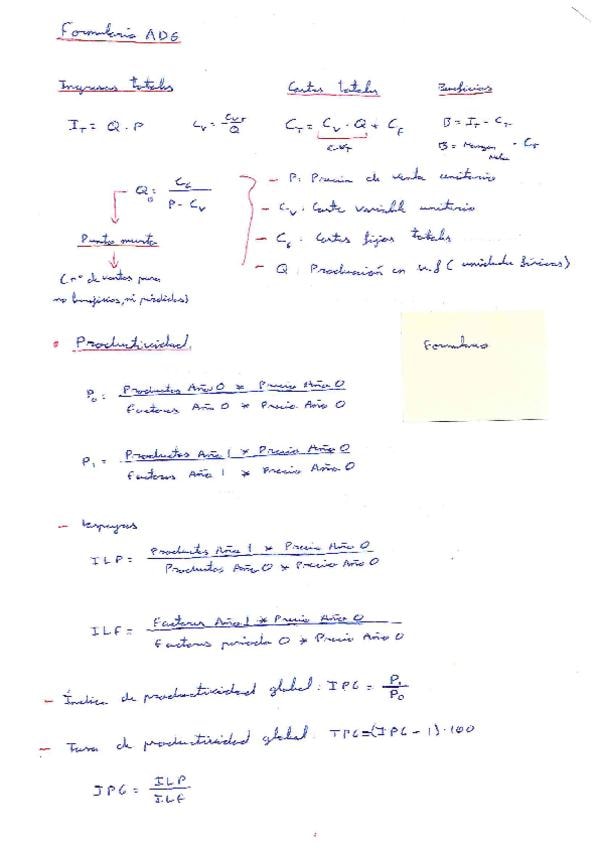 Formulario ADE
Ingresos totales
Costes totales
Beneficios
I_T = Q · P
C_V = C_VT / Q
C_T = C_V · Q + C_f
C_VT
B = I_T - C_T
B = Margen - C_f
Q_0 = C_f / (P - C_V)
Punto muerto
(nº de ventas para
no beneficios, ni pérdidas)
- P: Precio de venta unitario
- C_V: Coste variable unitario
- C_f: Costes fijos totales
- Q: Producción en u.f (unidades físicas)
• Productividad
Formulario
P_0 = Productos Año 0 * Precio Año 0 / Factores Año 0 * Precio Año 0
P_1 = Productos Año 1 * Precio Año 0 / Factores Año 1 * Precio Año 0
- Laspeyres
ILP = Productos Año 1 * Precio Año 0 / Productos Año 0 * Precio Año 0
ILF = Factores Año 1 * Precio Año 0 / Factores periodo 0 * Precio Año 0
- Índice de productividad global: IPG = P_1 / P_0
- Tasa de productividad global: TPG = (IPG - 1) · 100
IPG = ILP / ILF